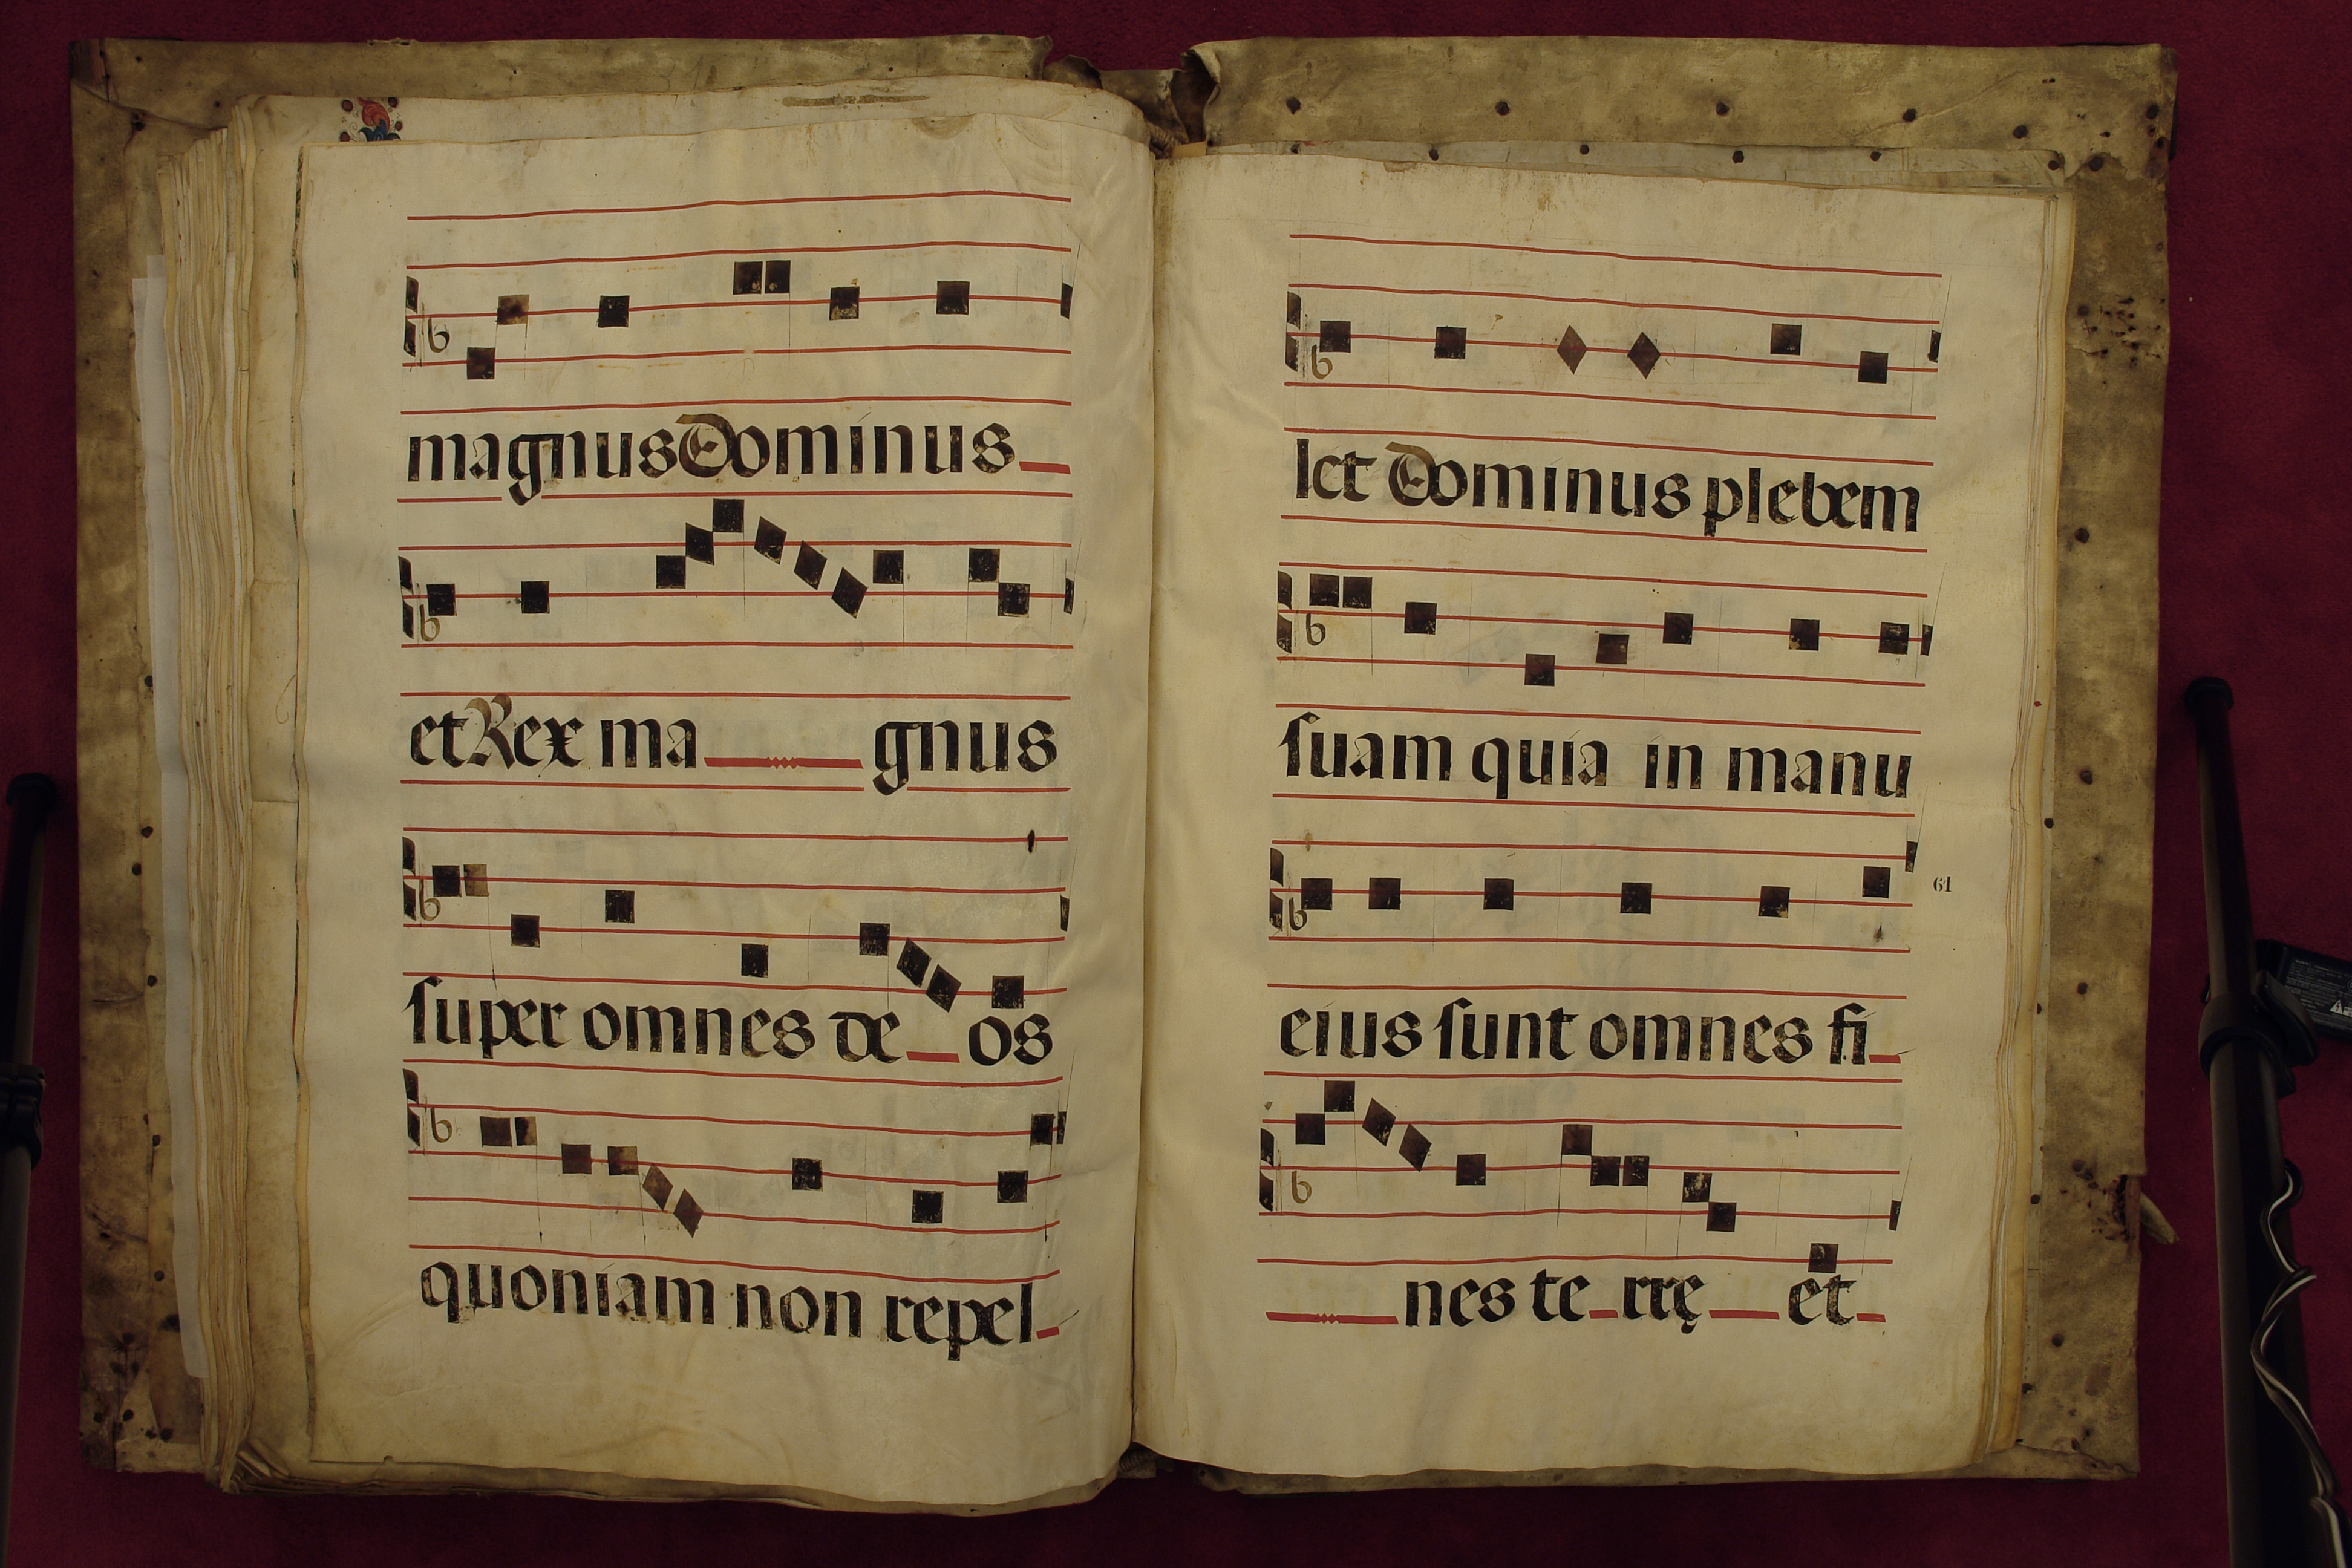 magnus Dominus
et Rex ma gnus
ſuper omnes de os
quoniam non repel
let Dominus plebem
ſuam quia in manu
61
eius ſunt omnes fi
nes te rrę et